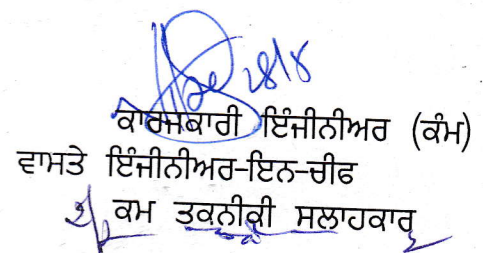 28/8
ਕਾਰਜਕਾਰੀ ਇੰਜੀਨੀਅਰ (ਕੰਮ)
ਵਾਸਤੇ ਇੰਜੀਨੀਅਰ-ਇਨ-ਚੀਫ
ਕਮ ਤਕਨੀਕੀ ਸਲਾਹਕਾਰ